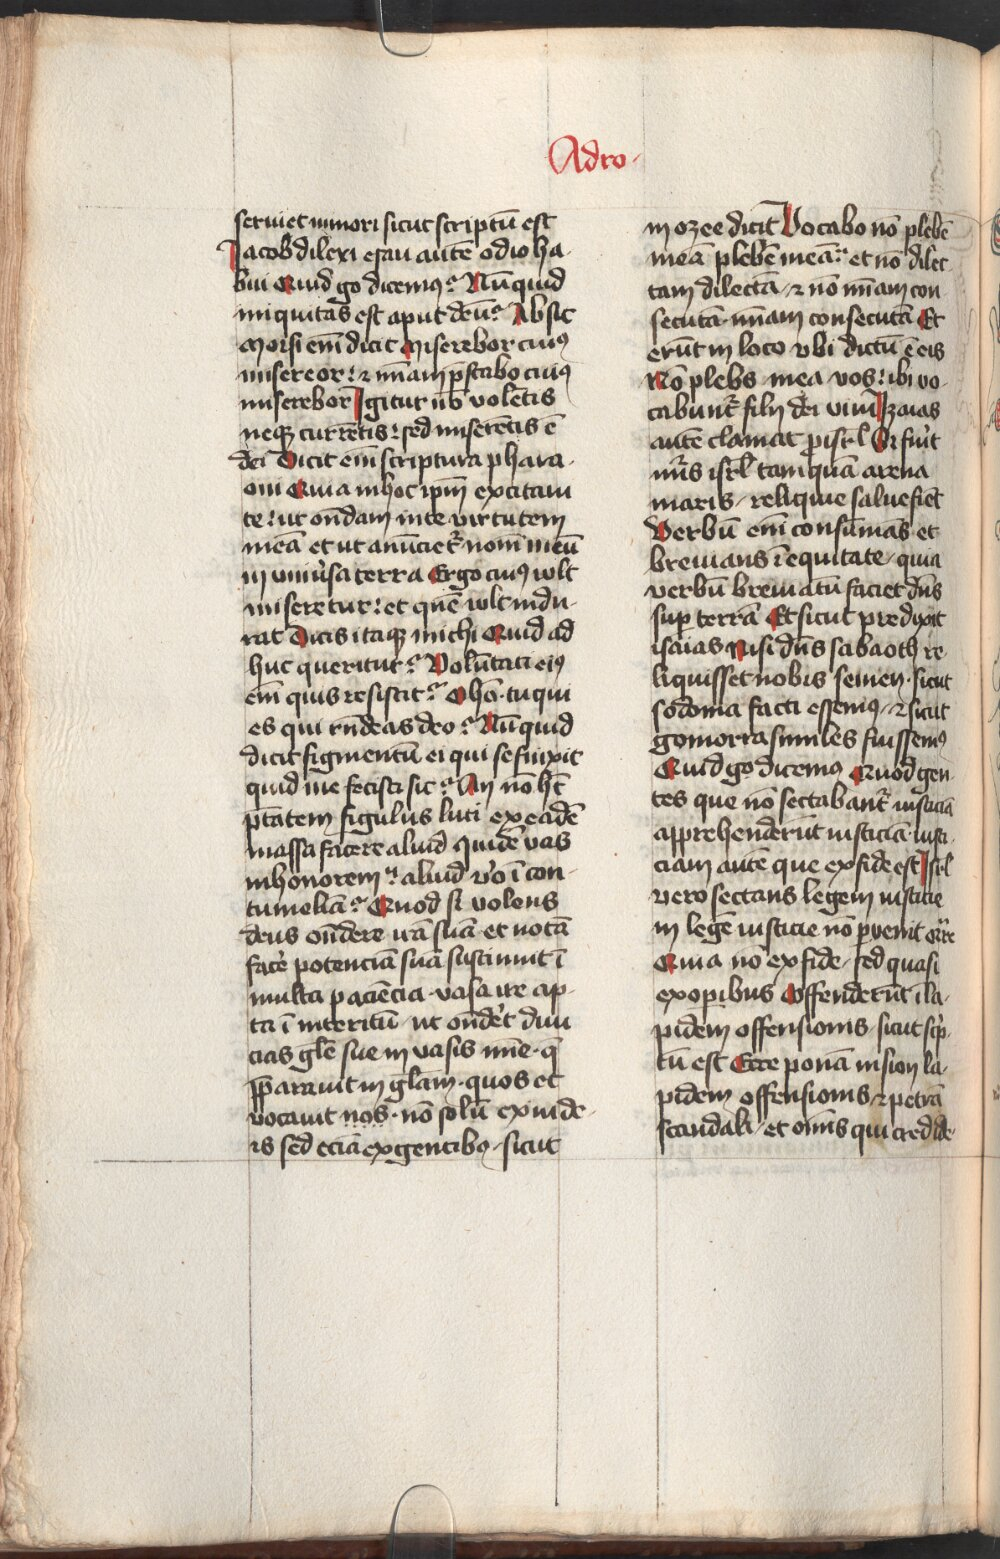 Adro·
seruiet minori sicut scriptū est
Jacob dilexi esau autē odio ha-
bui Quid go dicemꝰ? Nūquid
iniquitas est aput deū? Absit
Moysi em̄ dicit Miserebor cuiꝰ
misereor: ⁊ mīam p̄stabo cuiꝰ
miserebor Igitur nō volētis
neqꝫ currētis: sed miserētis ē
dei Dicit em̄ scriptura phara-
oni Quia in hoc ip̄m excitaui
te: ut ondam in te virtutem
meā et ut anūciet᷑ nomē meū
in vniūsa terra Ergo cuiꝰ wlt
miseretur: et quē wlt indu-
rat Dicis itaqꝫ michi Quid ad
huc queritur? Volūtati eiꝰ
em̄ quis resistit? O hō· tu qui
es qui rn̄deas deo? Nūquid
dicit figmentū ei qui se finxit
quid me fecisti sic? An nō hꝫ
ptātem figulus luti ex eadē
massa facere aliud quidē vas
in honorem? aliud v̓o ī con-
tumeliā? Quod si volens
deus ondere irā suā et notā
fac̓e potenciā suā sustinuit ī
multa paciēcia· vasa ire ap-
ta ī interitū· ut ondēt diui
cias glē sue in vasis mīe· q̄
ꝑparauit in glām· quos et
vocauit nos· nō solū ex iude-
is sed eciā ex gentibꝰ· sicut
in ozee dicit Vocabo nō plebē
meā plebē meā: et nō dilec-
tam dilectā· ⁊ nō mīam con
secutā· mīam consecutā Et
erūt in loco vbi dictū ē eis
Nō plebs mea vos: ibi vo-
cabunt᷑ filij dei viui Izaias
autē clamat p isrl̄ Si fu̓it
nūs isrl̄ tamquā arena
maris· reliquie salue fiēt
Verbū em̄ consūmās et
breuians ī equitate· quia
verbū breuiatū faciet dn̄s
suꝑ terrā Et sicut predixit
isaias Nisi dn̄s sabaoth re
liquisset nobis semen· sicut
sodoma facti essemꝰ· ⁊ sicut
gomorra similes fuissemꝰ
Quid go dicemꝰ Quod gen
tes que nō sectabant᷑ iusticiā
apprehenderūt iusticiā· iusti-
ciam autē que ex fide est Isrl̄
vero sectans legem iusticie
in legē iusticie nō ꝑuenit
Quia nō ex fide· sed quasi
ex opibus Offenderūt ī la-
pidem offensionis· sicut sc̓p
tū est Ecce ponā in sion la-
pidem offensionis· ⁊ petrā
scandali· et omīs qui credide